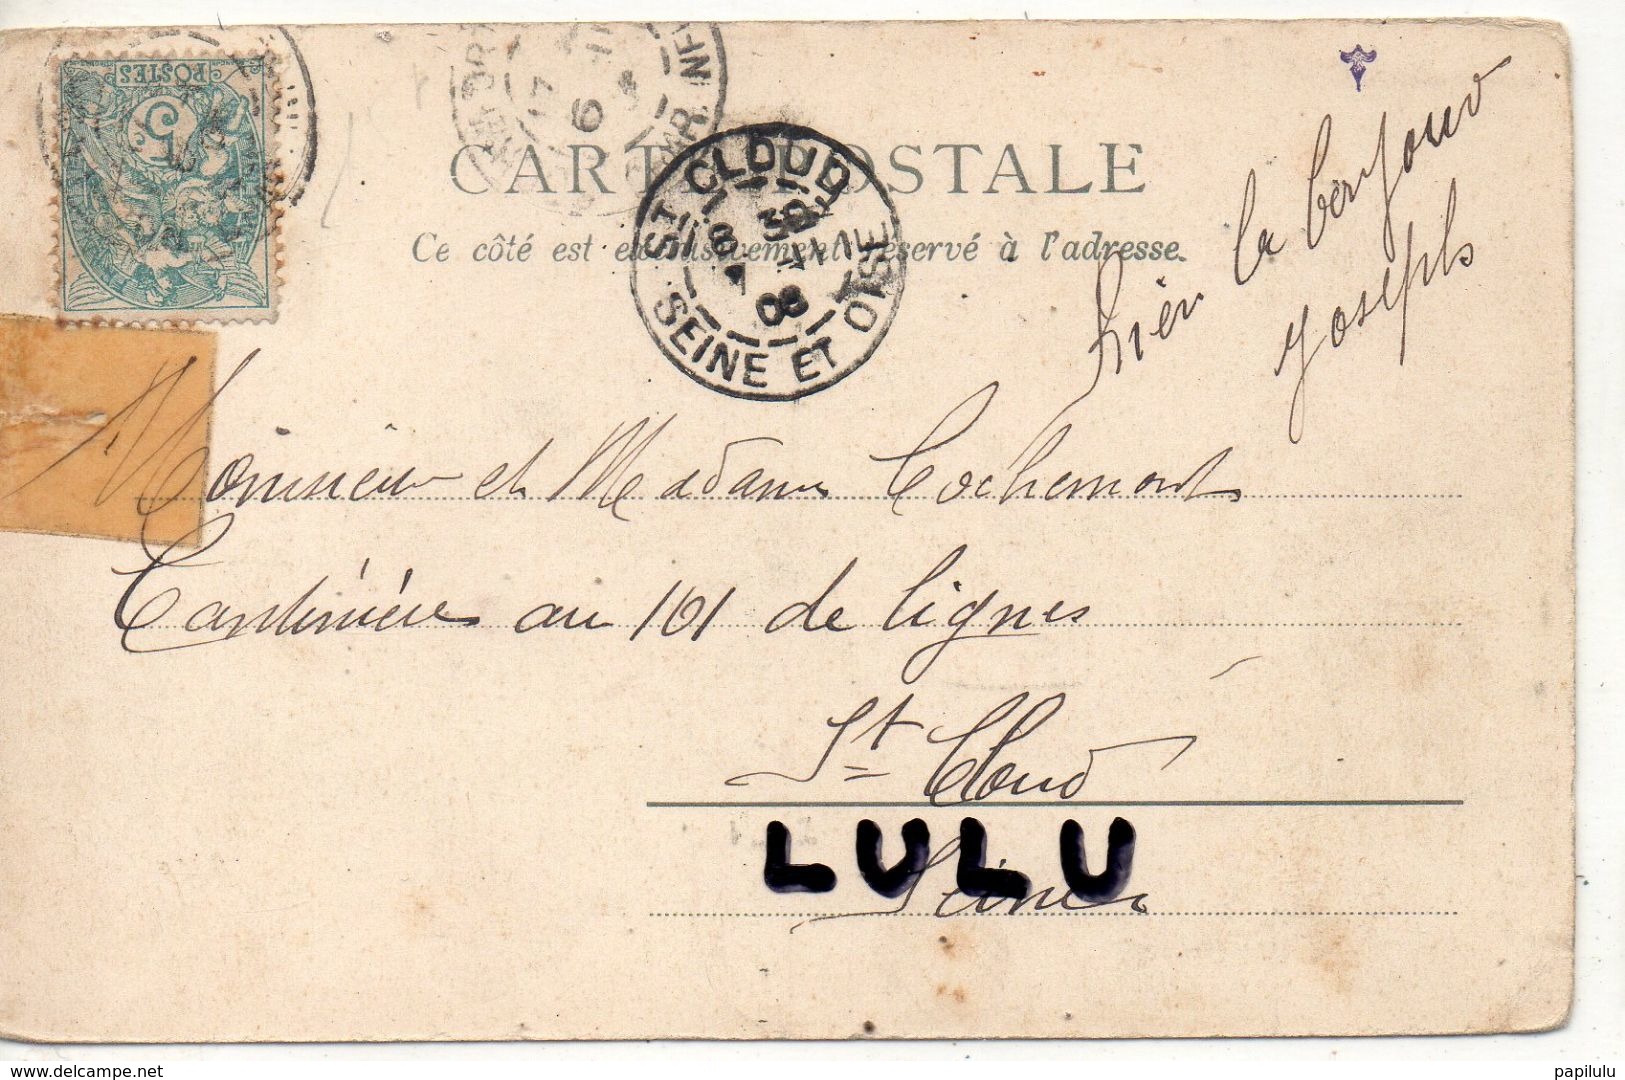 POSTES
5
CARTE POSTALE
Ce côté est exclusivement réservé à l'adresse.
ST CLOUD
SEINE ET OISE
bien le bonjour
Joseph
Monsieur et Madame Cochemont
Cantinière au 101 de lignes
St Cloud
LULU
Seine
delcampe.net
papilulu